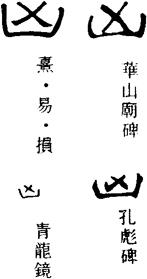 凶
華山廟碑
凶
孔彪碑
凶
熹・易・損
凶
青龍鏡